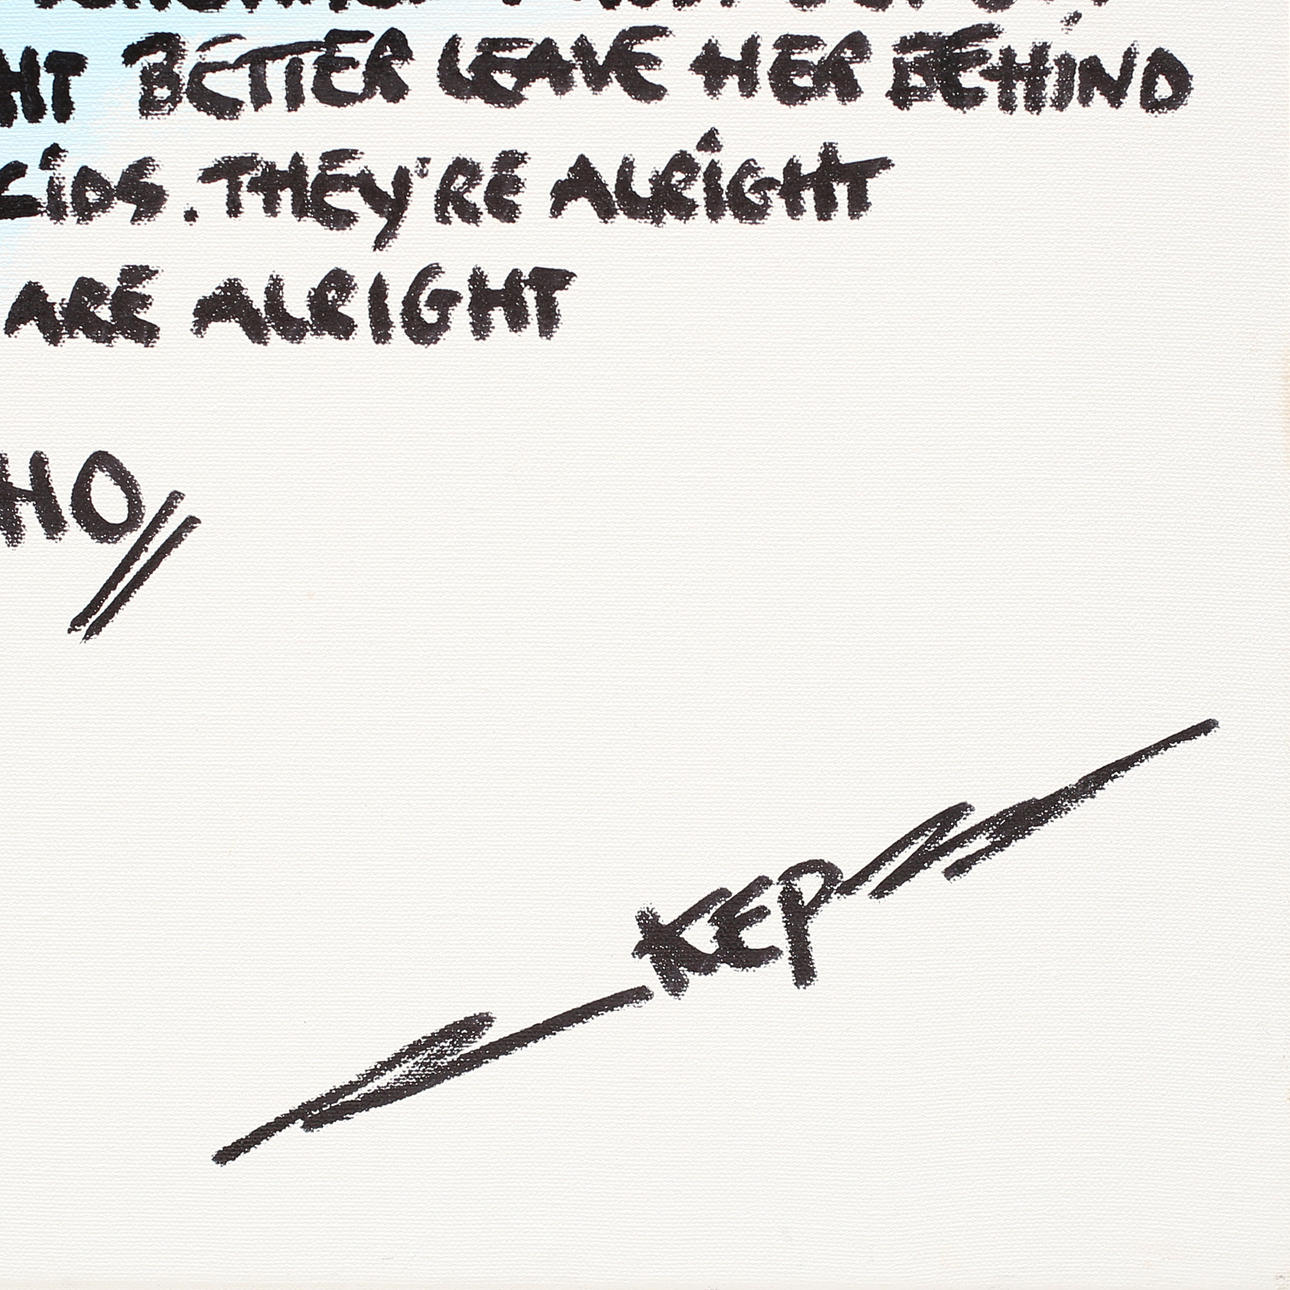 HT BETTER LEAVE HER BEHIND
KIDS. THEY'RE ALRIGHT
ARE ALRIGHT
HO//
KEP